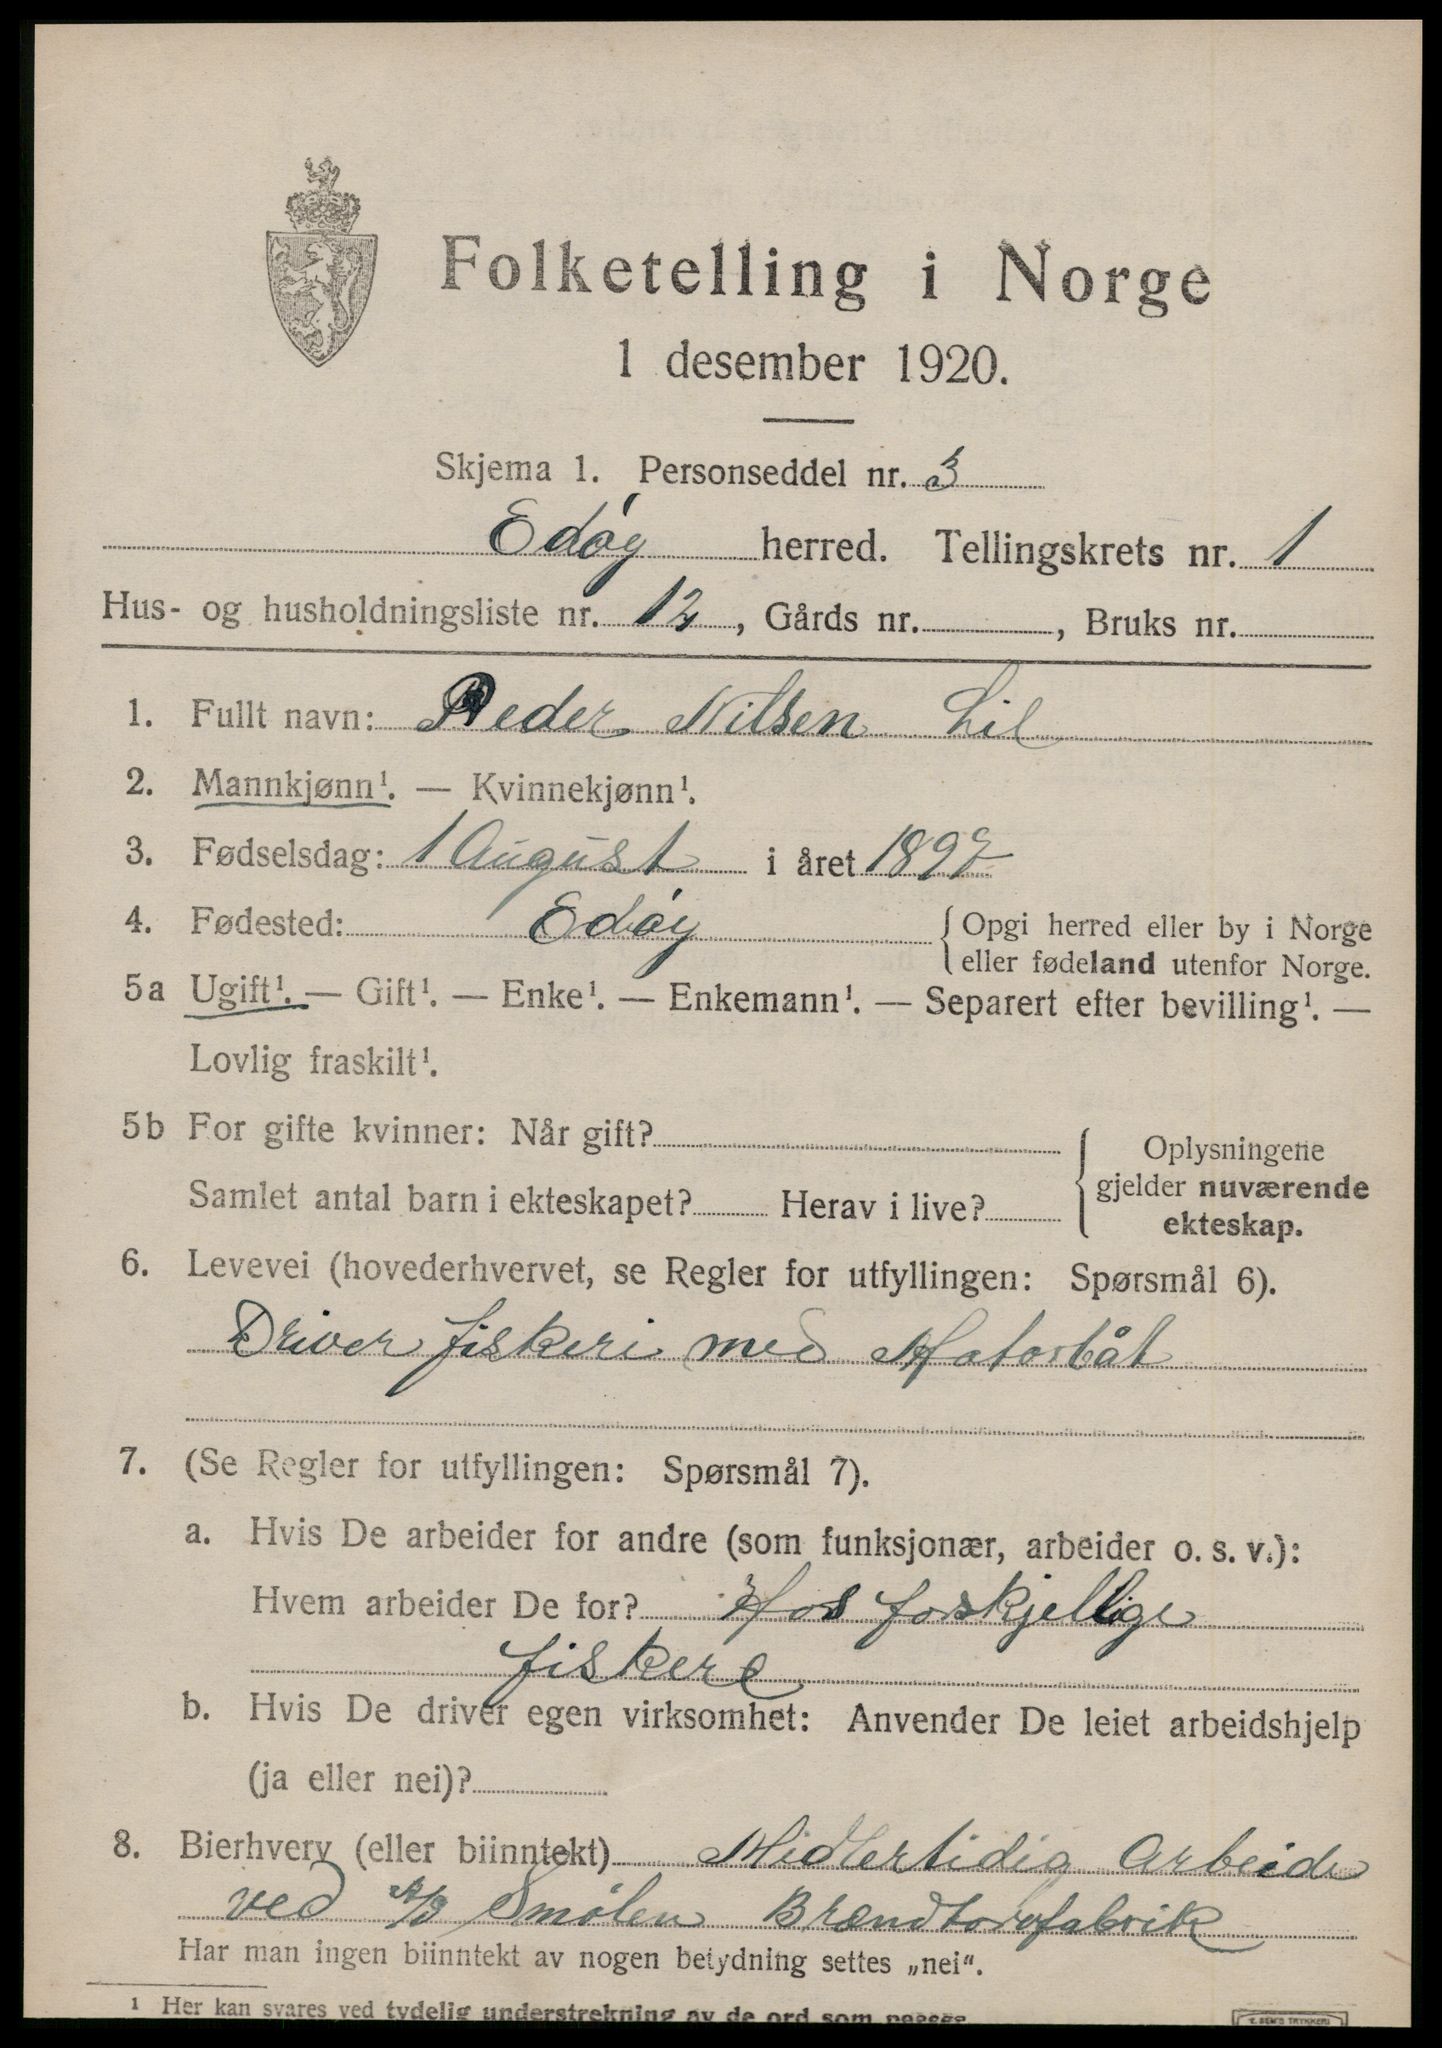 Folketelling i Norge
1 desember 1920.
Skjema 1. Personseddel nr. 3
Edøy herred. Tellingskrets nr. 1
Hus- og husholdningsliste nr. 12, Gårds nr. , Bruks nr.
1. Fullt navn: Peder Nilsen Lil
2. Mannkjønn¹. — Kvinnekjønn¹.
3. Fødselsdag: 1 August i året 1897
4. Fødested: Edøy {Opgi herred eller by i Norge
eller fødeland utenfor Norge.
5a Ugift¹. — Gift¹. — Enke¹. — Enkemann¹. — Separert efter bevilling¹. —
Lovlig fraskilt¹.
5b For gifte kvinner: Når gift?
Samlet antal barn i ekteskapet? Herav i live?
{Oplysningene
gjelder nuværende
ekteskap.
6. Levevei (hovederhvervet, se Regler for utfyllingen: Spørsmål 6).
Driver fiskeri med Motorbåt
7. (Se Regler for utfyllingen: Spørsmål 7).
a. Hvis De arbeider for andre (som funksjonær, arbeider o. s. v.):
Hvem arbeider De for? Hos forskjellige
fiskere
b. Hvis De driver egen virksomhet: Anvender De leiet arbeidshjelp
(ja eller nei)?
8. Bierhverv (eller biinntekt) Midlertidig Arbeide
ved A/S Smølen Brændtorvfabrik
Har man ingen biinntekt av nogen betydning settes „nei“.
¹ Her kan svares ved tydelig understrekning av de ord som passe
E. SEM'S TRYKKERI